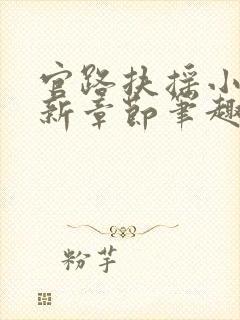 官路扶摇小
新章节笔趣
粉芋